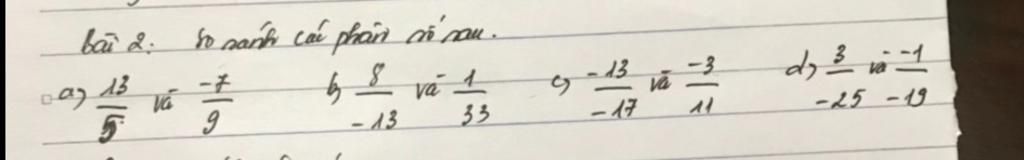 Bài 2: So sánh các phân số sau.
a) 13/5 và -7/9 b) 8/-13 và 1/33 c) -13/-17 và -3/11 d) 3/-25 và -1/-19